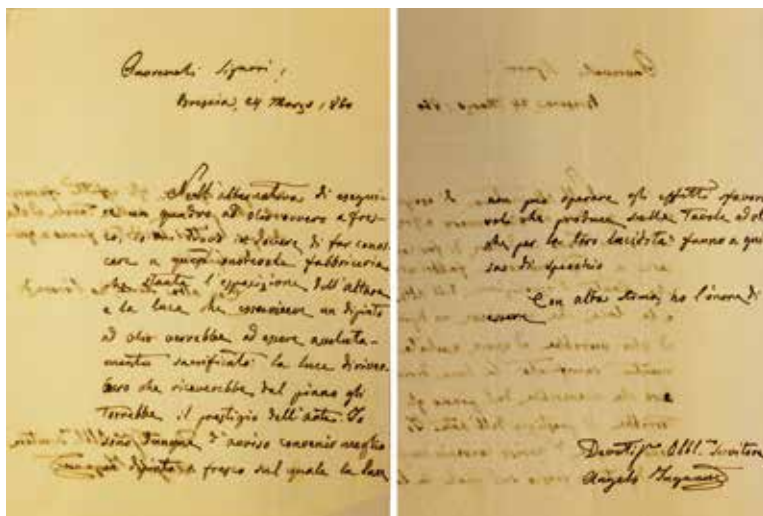 Onorevoli Signori,
Brescia, 24 Marzo, 1860
Nell'alternativa di esegui-
re un quadro ad olio ovvero a fres-
co, io mi trovo in dovere di far conos-
cere a quest' onorevole fabbriceria
che stante l'esposizione dell'altare
e la luce che un dipinto
ad olio verrebbe ad essere assoluta-
mente sacrificato la luce di river-
bero che riceverebbe dal piano gli
torrebbe il prestigio dell'arte. Io
sono dunque d'avviso convenir meglio
dipinto a fresco sul quale la luce
non può sperare gli effetti sfavore
voli che produce sulle Tavole ad ol
che per la loro lucidità fanno a gui
sa di specchio
Con alta stima, ho l'onore di
essere
Devotiss. Obbl. Servitore
Angelo Inganni